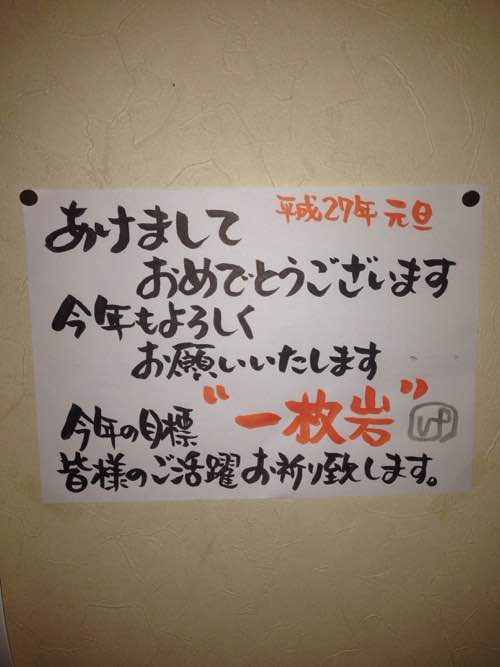 平成27年 元旦
あけまして
おめでとうございます
今年もよろしく
お願いいたします
今年の目標 "一枚岩"
皆様のご活躍お祈り致します。